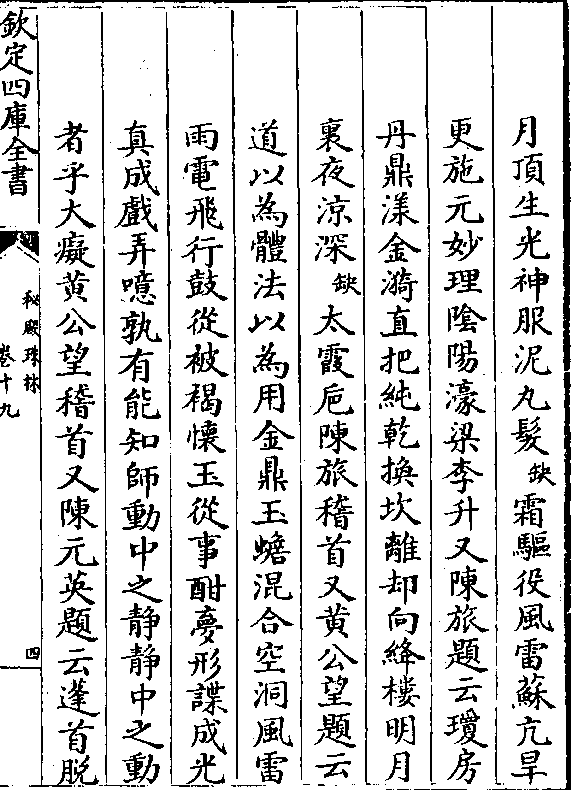 月頂生光神服泥丸髮缺霜驅役風雷蘇亢旱
更施元妙理陰陽濠梁李升又陳旅題云瓊房
丹鼎漾金漪直把純乾換坎離却向絳樓明月
裏夜涼深缺太霞巵陳旅稽首又黄公望題云
道以為體法以為用金鼎玉蟾混合空洞風雷
雨電飛行鼓從被褐懷玉從事酣夢形諜成光
真成戲弄噫孰有能知師動中之静静中之動
者乎大癡黄公望稽首又陳元英題云蓬首脱
欽定四庫全書
秘殿珠林
卷十九
四